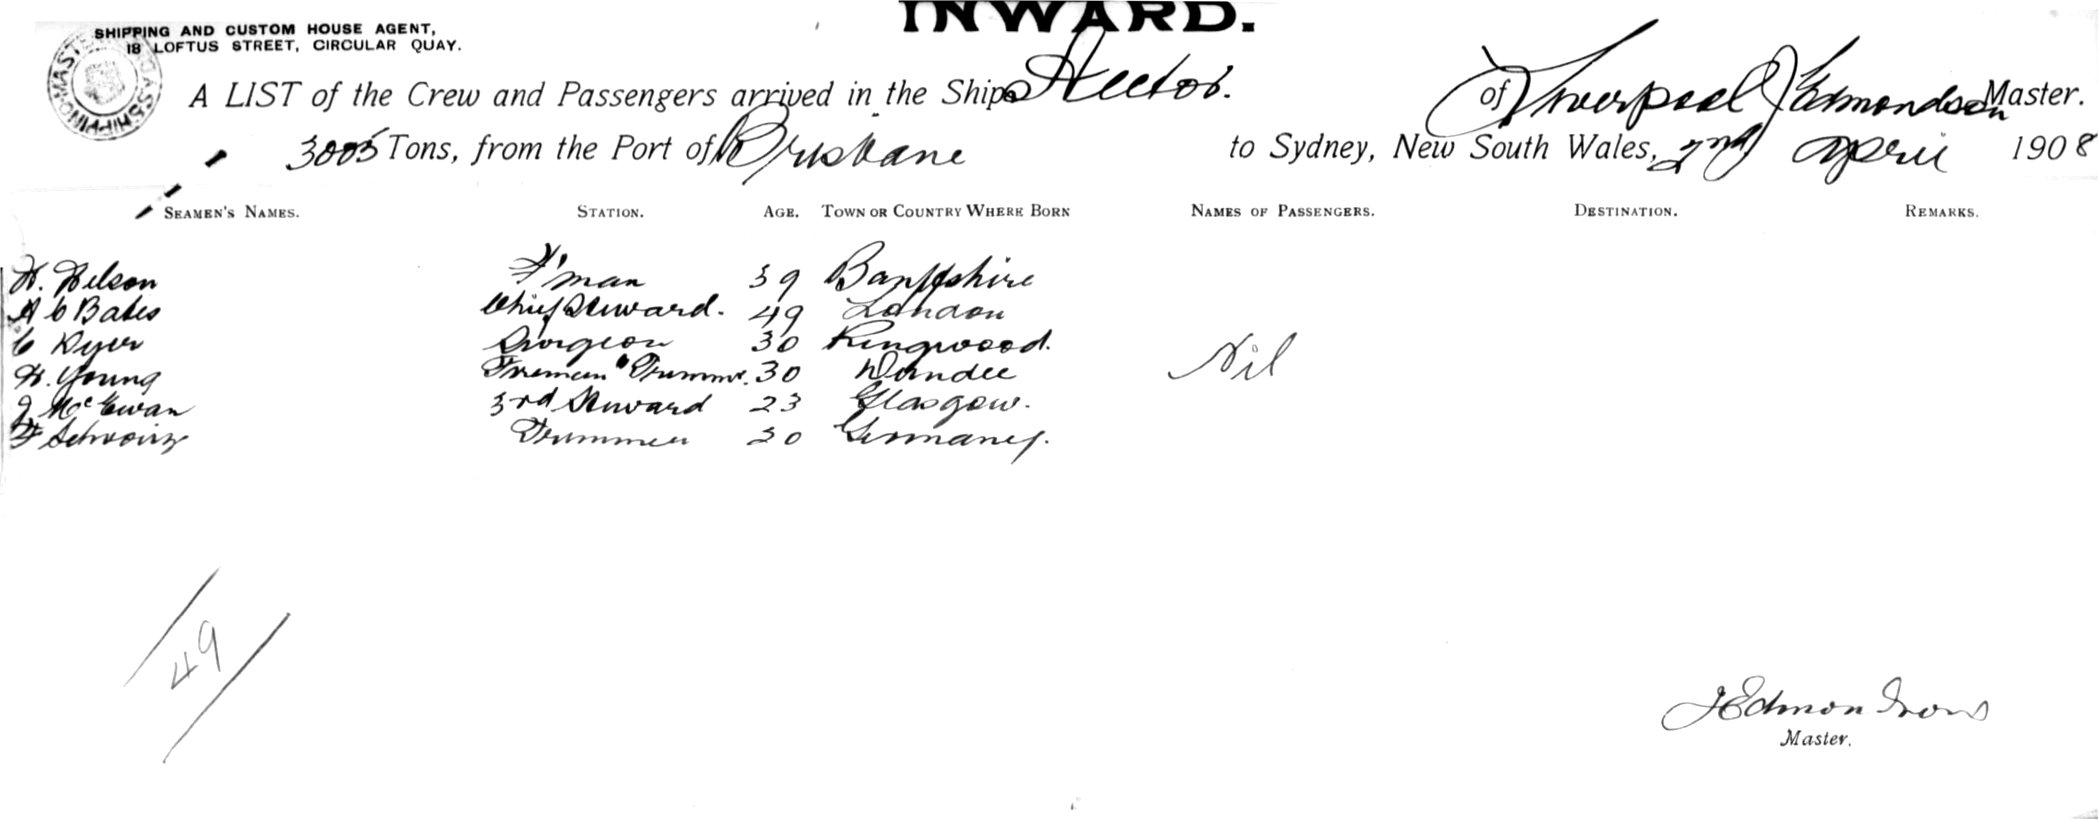 INWARD.
SHIPPING AND CUSTOM HOUSE AGENT,
18 LOFTUS STREET, CIRCULAR QUAY.
A LIST of the Crew and Passengers arrived in the Ship Hector. of Liverpool J Edmondson Master.
3005 Tons, from the Port of Brisbane to Sydney, New South Wales, 2nd April 1908
SEAMEN'S NAMES. STATION. AGE. TOWN OR COUNTRY WHERE BORN NAMES OF PASSENGERS. DESTINATION. REMARKS.
W. Nelson F'man 39 Banffshire
A C Bates Chief Steward. 49 London
C Dyer Surgeon 30 Ringwood.
W. Young Fireman & Trimmr. 30 Dundee Nil
J McEwan 3rd Steward 23 Glasgow.
F Schwarz Trimmer 30 Germany.
49
J Edmondson
Master.